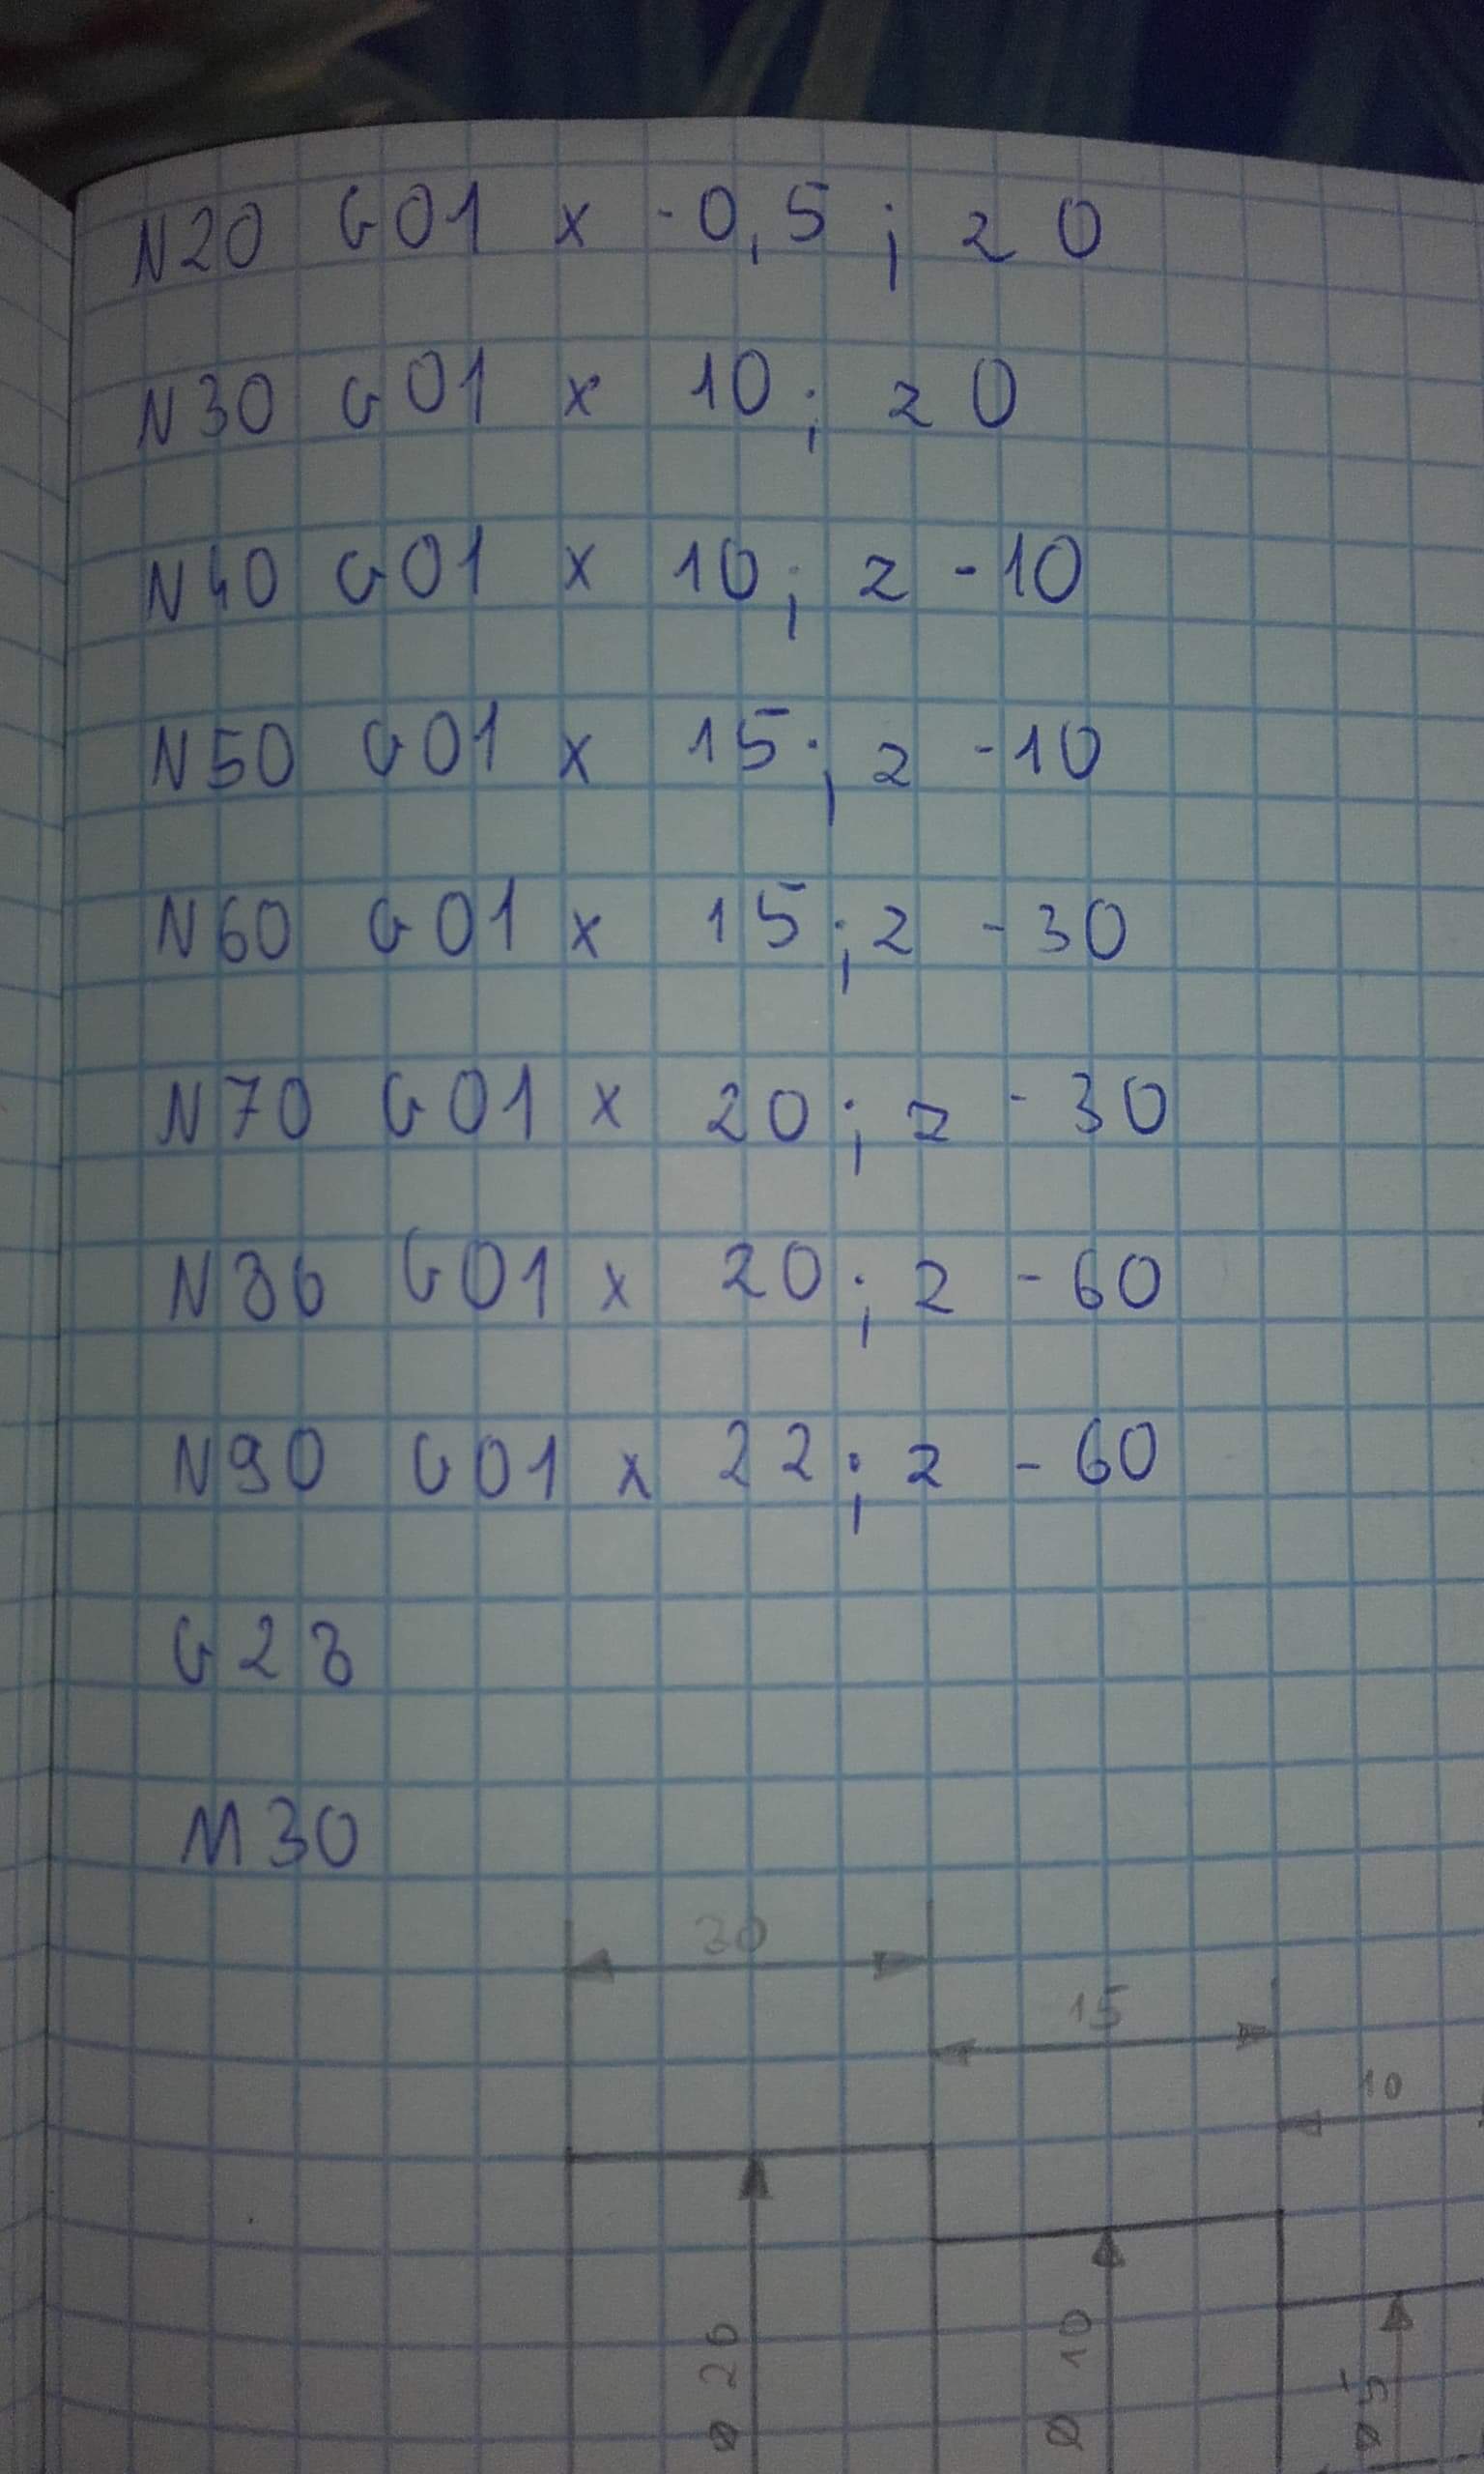 N20 G01 x -0,5 ; z 0
N30 G01 x 10 ; z 0
N40 G01 x 10 ; z -10
N50 G01 x 15 ; z -10
N60 G01 x 15 ; z -30
N70 G01 x 20 ; z -30
N80 G01 x 20 ; z -60
N90 G01 x 22 ; z -60
G28
M30
30
15
10
ø 20
ø 10
ø 5